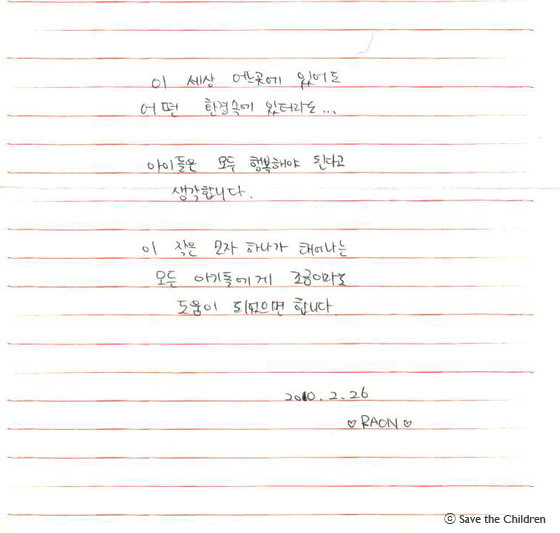 이 세상 어느곳에 있어도
어떤 환경속에 있더라도...
아이들은 모두 행복해야 된다고
생각합니다.
이 작은 모자 하나가 태어나는
모든 아기들에게 조금이라도
도움이 되었으면 합니다.
2010. 2. 26
♡ RAON ♡
ⓒ Save the Children